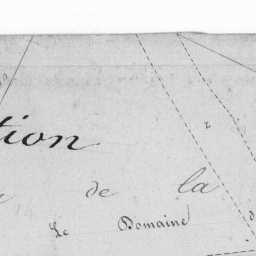 tion
de la
Le Domaine